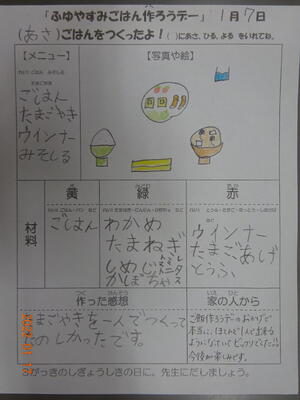 「ふゆやすみごはん作ろうデー」 1月7日
(あさ)ごはんをつくったよ！( )にあさ、ひる、よる をいれてね。
【メニュー】
【写真や絵】
ごはん
たまごやき
ウインナー
みそしる
黄
緑
赤
材料
ごはん
わかめ
たまねぎ
しめじ
かぼちゃ
ミニトマト
レタス
ウインナー
たまごあげ
とうふ
作った感想
家の人から
たまごやきを一人でつくって
たのしかったです。
ご飯作ろうデーのおかげで
本当に、ほとんど1人で出来る
ようになっていてビックリでした！！
今後が楽しみです。
3がっきのしぎょうしきの日に、先生にだしましょう。